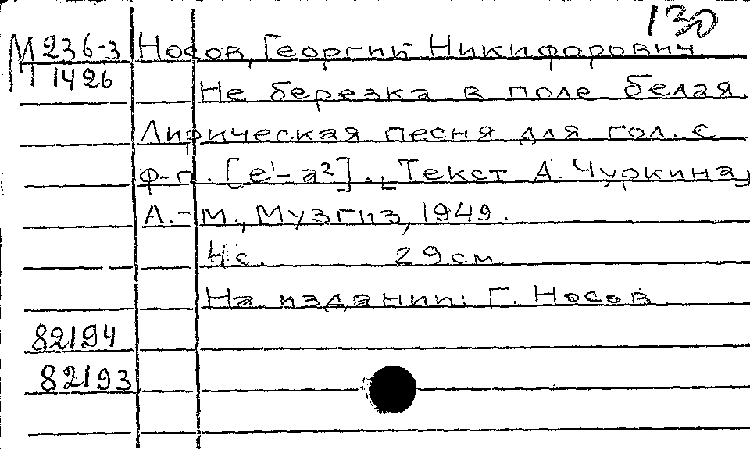 130
М 236-3 Носов, Георгий Никифорович
1426
Не березка в поле белая.
Лирическая песня для гол. с
ф-п. [e¹-a²]. [Текст А. Чуркина,
Л.-М., Музгиз, 1949.
4с. 29см
На издании: Г. Носов
82194
82193